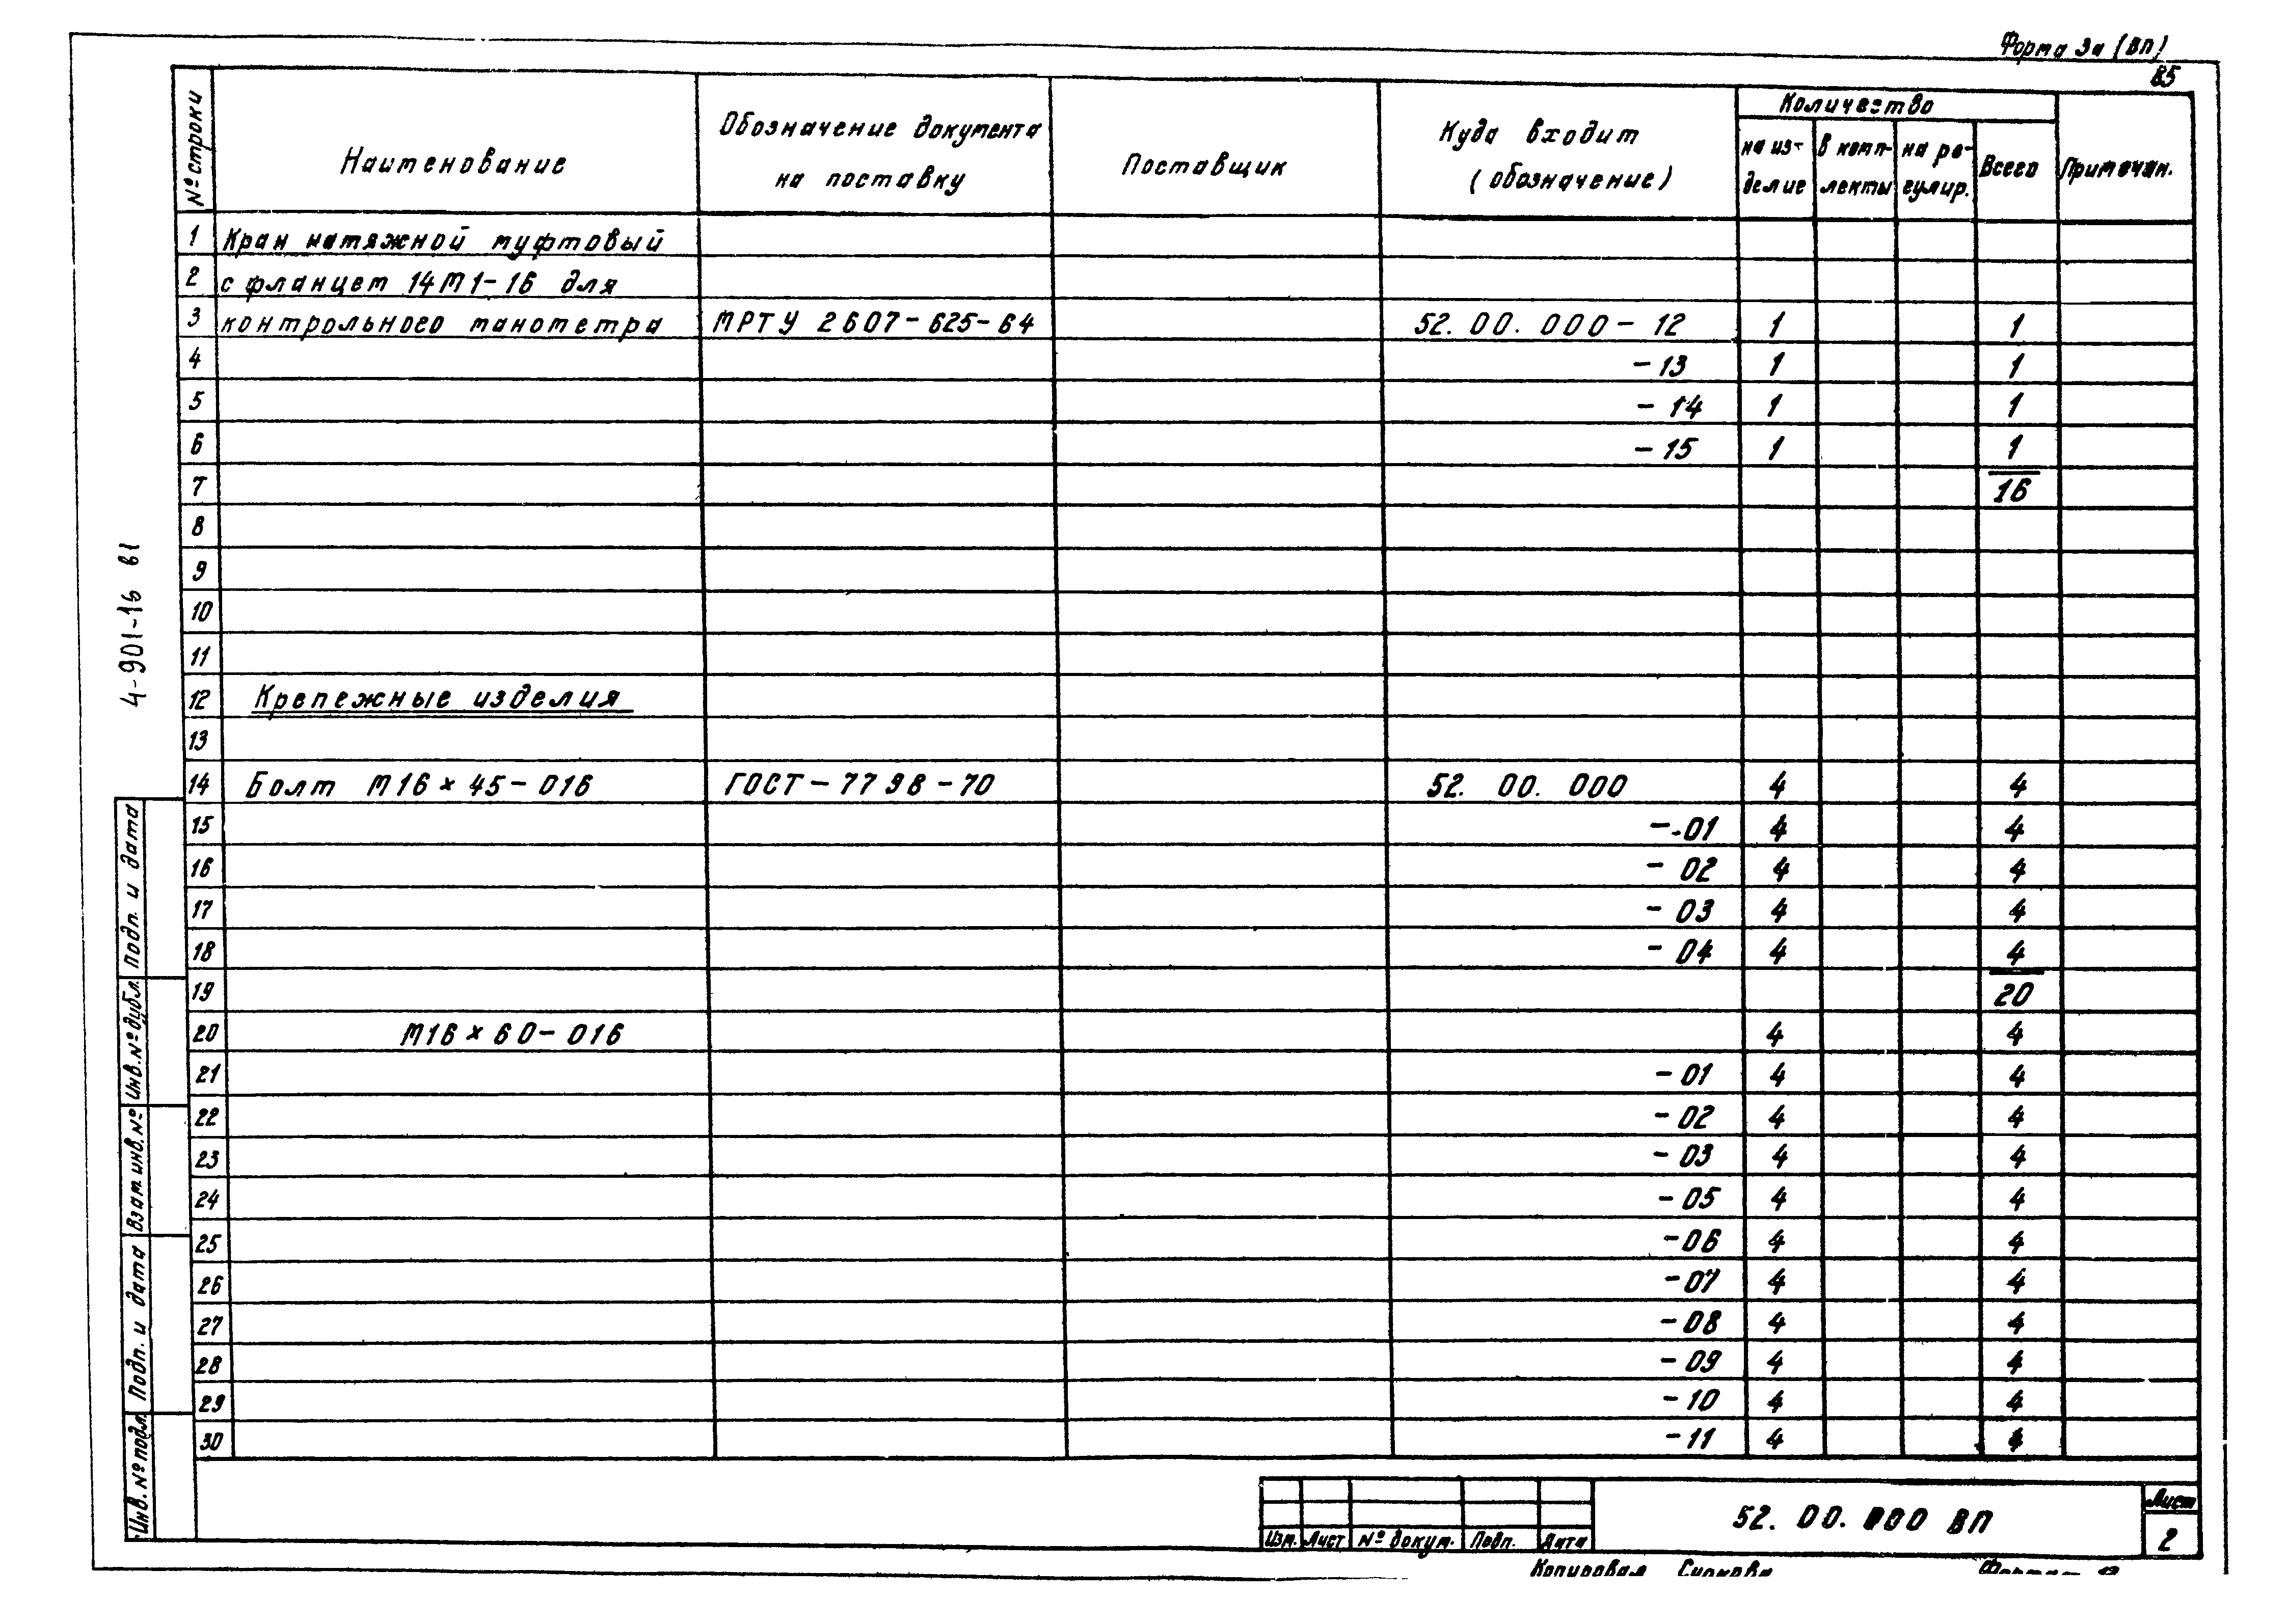 Форма 3а (ВП)
85
№ строки
Наименование
Обозначение документа
на поставку
Поставщик
Куда входит
(обозначение)
Количество
на из-
делие
в комп-
лекты
на ре-
гулир.
Всего
Примечан.
1 Кран натяжной муфтовый
2 с фланцем 14М1-16 для
3 контрольного манометра МРТУ 2607-625-64 52.00.000-12 1 1
4 -13 1 1
5 -14 1 1
6 -15 1 1
7 16
8
9
10
11
12 Крепежные изделия
13
14 Болт М16×45-016 ГОСТ-7798-70 52. 00. 000 4 4
15 -01 4 4
16 -02 4 4
17 -03 4 4
18 -04 4 4
19 20
20 М16×60-016 4 4
21 -01 4 4
22 -02 4 4
23 -03 4 4
24 -05 4 4
25 -06 4 4
26 -07 4 4
27 -08 4 4
28 -09 4 4
29 -10 4 4
30 -11 4 4
4-901-16 в1
Подп. и дата
Инв. № дубл.
Взам. инв. №
Подп. и дата
Инв. № подл.
Изм. Лист № докум. Подп. Дата
52. 00. 000 ВП
Лист
2
Копировал
Формат 12